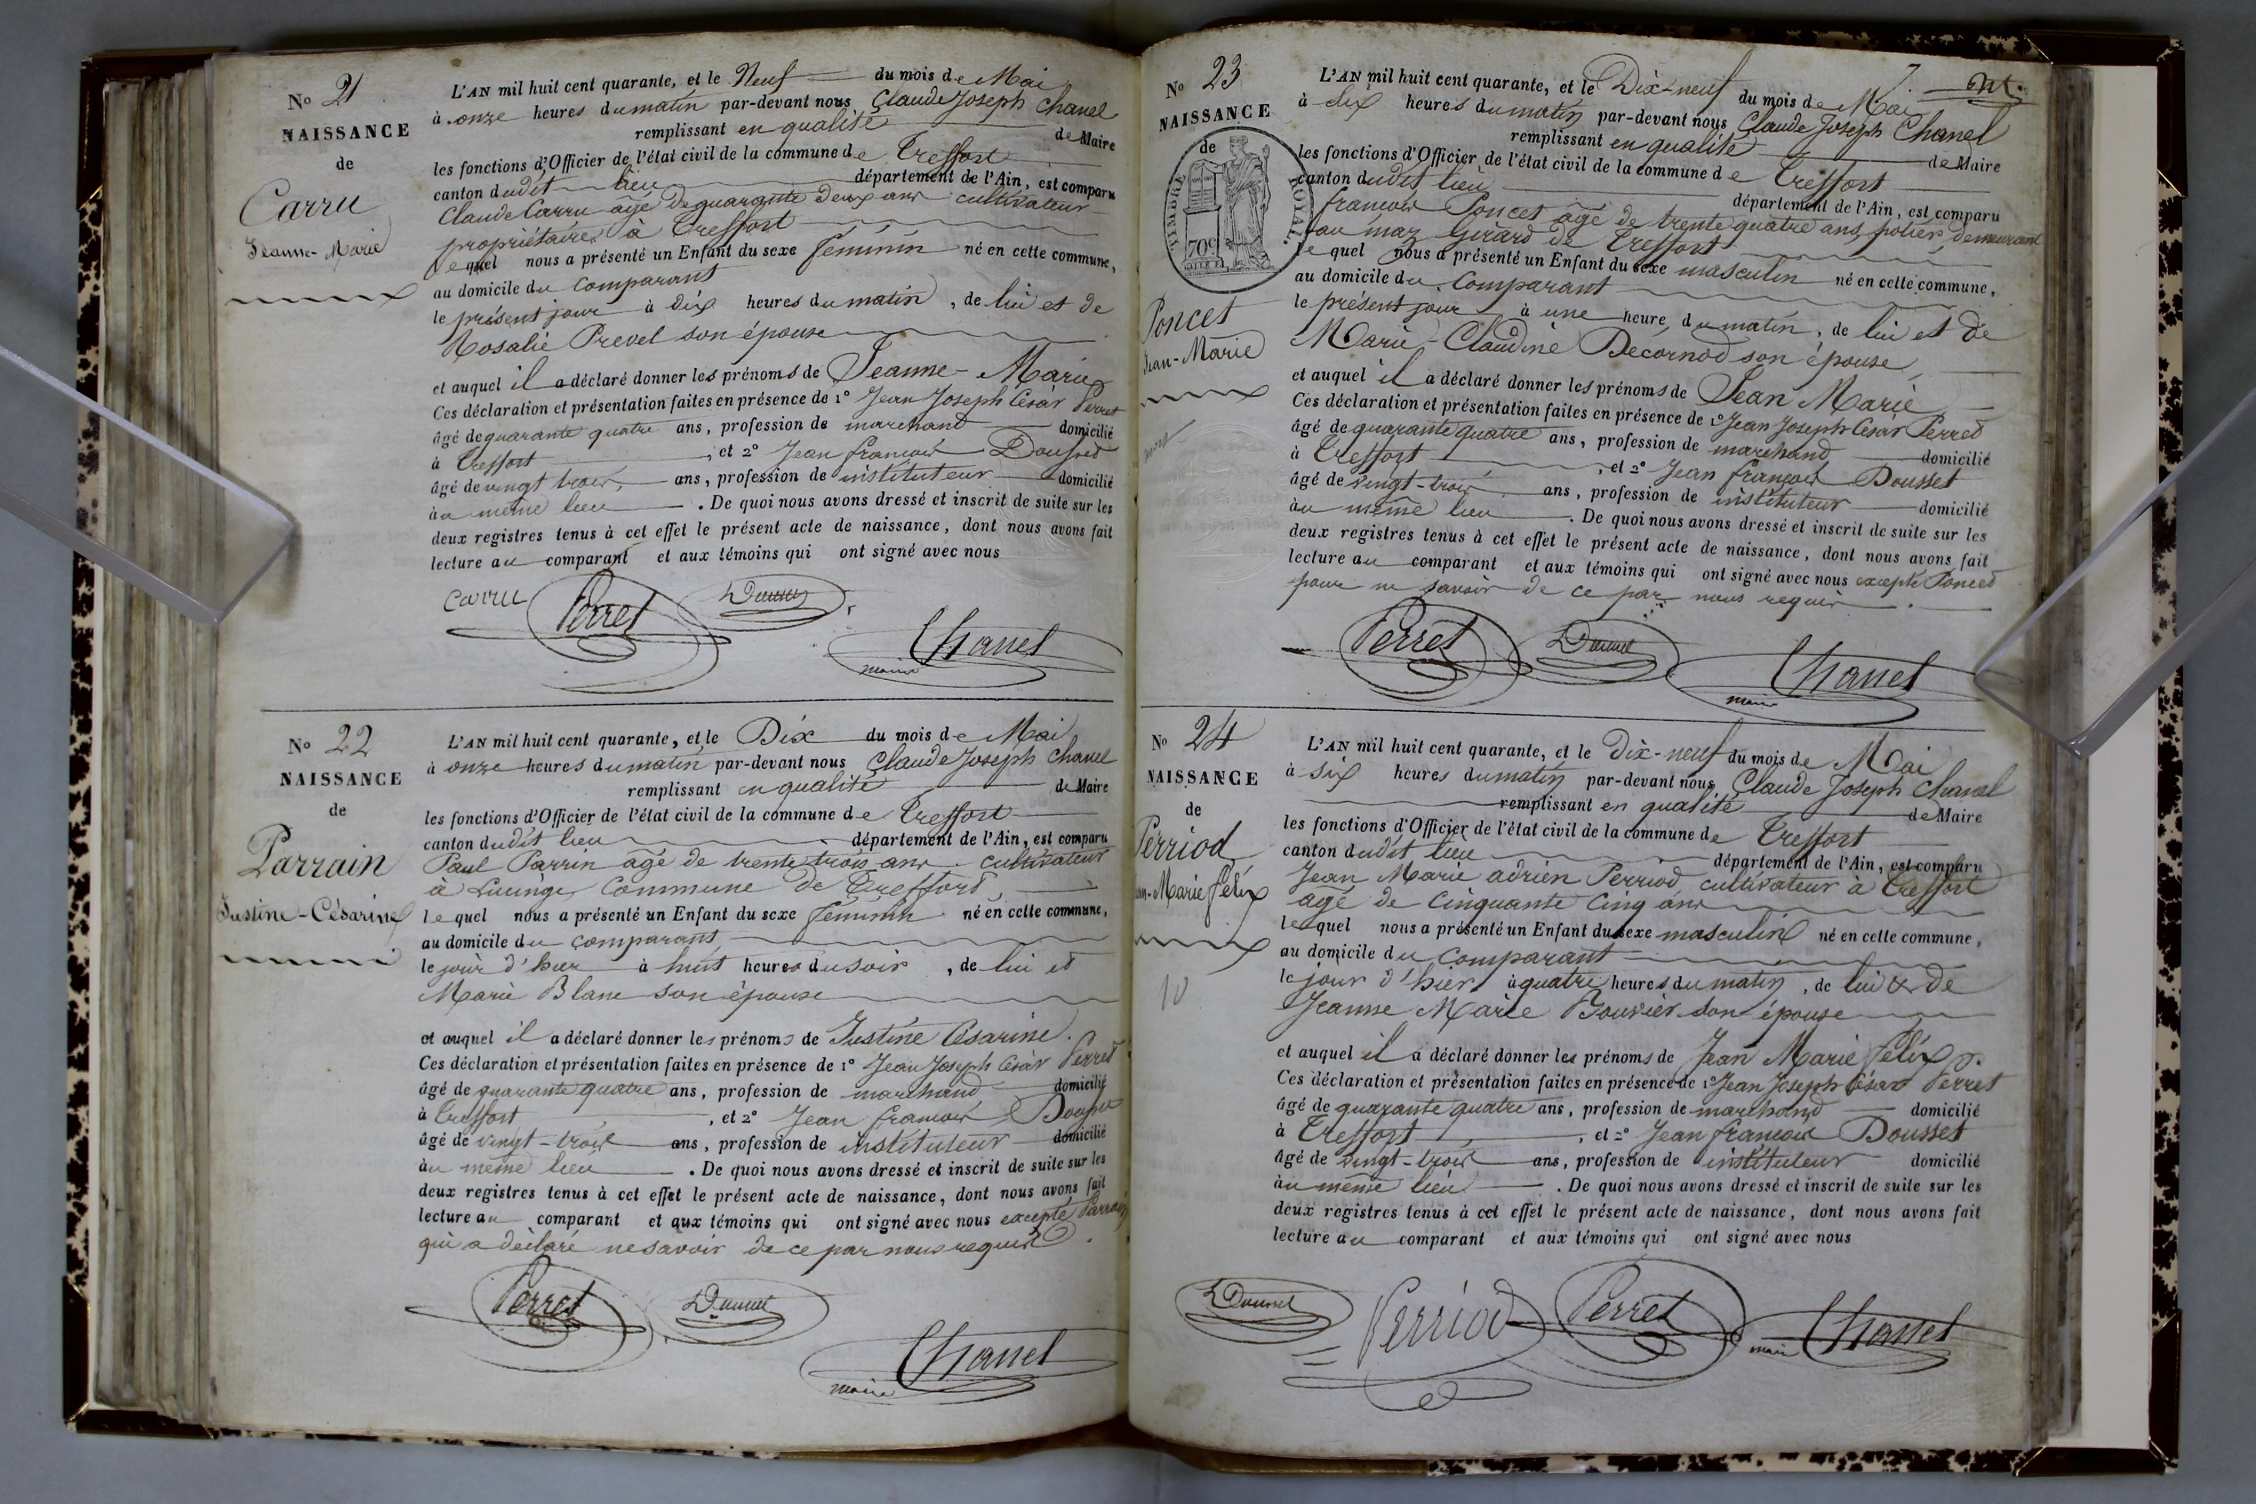 No 21
NAISSANCE
de
Carru
Jeanne-Marie
L'AN mil huit cent quarante, et le Neuf du mois de Mai
à onze heures du matin par-devant nous Claude Joseph Chanel
remplissant en qualité de Maire
les fonctions d'Officier de l'état civil de la commune de Treffort
canton dudit lieu département de l'Ain, est comparu
Claude Carru âgé de quarante deux ans cultivateur
propriétaire à Treffort
lequel nous a présenté un Enfant du sexe féminin né en cette commune,
au domicile du comparant
le présent jour à dix heures du matin, de lui et de
Rosalie Prevel son épouse
et auquel il a déclaré donner les prénoms de Jeanne-Marie
Ces déclaration et présentation faites en présence de 1° Jean Joseph César Perret
âgé de quarante quatre ans, profession de marchand domicilié
à Treffort, et 2° Jean françois Dousset
âgé de vingt trois ans, profession de instituteur domicilié
au même lieu. De quoi nous avons dressé et inscrit de suite sur les
deux registres tenus à cet effet le présent acte de naissance, dont nous avons fait
lecture au comparant et aux témoins qui ont signé avec nous
Carru Perret Dousset
Chanel
maire
No 22
NAISSANCE
de
Parrain
Justine-Césarine
L'AN mil huit cent quarante, et le Dix du mois de Mai
à onze heures du matin par-devant nous Claude Joseph Chanel
remplissant en qualité de Maire
les fonctions d'Officier de l'état civil de la commune de Treffort
canton dudit lieu département de l'Ain, est comparu
Paul Parrin âgé de trente trois ans cultivateur
à Lucinge commune de Treffort,
lequel nous a présenté un Enfant du sexe féminin né en cette commune,
au domicile du comparant
le jour d'hier à huit heures du soir, de lui et
Marie Blanc son épouse
et auquel il a déclaré donner les prénoms de Justine Césarine.
Ces déclaration et présentation faites en présence de 1° Jean Joseph César Perret
âgé de quarante quatre ans, profession de marchand domicilié
à Treffort, et 2° Jean françois Dousset
âgé de vingt-trois ans, profession de instituteur domicilié
au même lieu. De quoi nous avons dressé et inscrit de suite sur les
deux registres tenus à cet effet le présent acte de naissance, dont nous avons fait
lecture au comparant et aux témoins qui ont signé avec nous excepté Parrain
qui a déclaré ne savoir de ce par nous requis.
Perret Dousset
Chanel
maire
No 23
NAISSANCE
de
TIMBRE ROYAL
70c
Poncet
Jean-Marie
L'AN mil huit cent quarante, et le Dix-neuf du mois de Mai
à six heures du matin par-devant nous Claude Joseph Chanel
remplissant en qualité de Maire
les fonctions d'Officier de l'état civil de la commune de Treffort
canton dudit lieu département de l'Ain, est comparu
françois Poncet âgé de trente quatre ans, potier, demeurant
au maz Girard de Treffort
lequel nous a présenté un Enfant du sexe masculin né en cette commune,
au domicile du comparant
le présent jour à une heure du matin, de lui et de
Marie-Claudine Decornod son épouse
et auquel il a déclaré donner les prénoms de Jean Marie
Ces déclaration et présentation faites en présence de 1° Jean Joseph César Perret
âgé de quarante quatre ans, profession de marchand domicilié
à Treffort, et 2° Jean françois Dousset
âgé de vingt-trois ans, profession de instituteur domicilié
au même lieu. De quoi nous avons dressé et inscrit de suite sur les
deux registres tenus à cet effet le présent acte de naissance, dont nous avons fait
lecture au comparant et aux témoins qui ont signé avec nous excepté Poncet
pour ne savoir de ce par nous requis.
Perret Dousset
Chanel
maire
No 24
NAISSANCE
de
Perriod
Jean-Marie félix
10
L'AN mil huit cent quarante, et le Dix-neuf du mois de Mai
à six heures du matin par-devant nous Claude Joseph Chanel
remplissant en qualité de Maire
les fonctions d'Officier de l'état civil de la commune de Treffort
canton dudit lieu département de l'Ain, est comparu
Jean Marie adrien Perriod cultivateur à Treffort
âgé de cinquante cinq ans
lequel nous a présenté un Enfant du sexe masculin né en cette commune,
au domicile du comparant
le jour d'hier à quatre heures du matin, de lui & de
Jeanne Marie Bouvier son épouse
et auquel il a déclaré donner les prénoms de Jean Marie félix
Ces déclaration et présentation faites en présence de 1° Jean Joseph César Perret
âgé de quarante quatre ans, profession de marchand domicilié
à Treffort, et 2° Jean françois Dousset
âgé de vingt-trois ans, profession de instituteur domicilié
au même lieu. De quoi nous avons dressé et inscrit de suite sur les
deux registres tenus à cet effet le présent acte de naissance, dont nous avons fait
lecture au comparant et aux témoins qui ont signé avec nous
Dousset Perriod Perret Chanel
maire